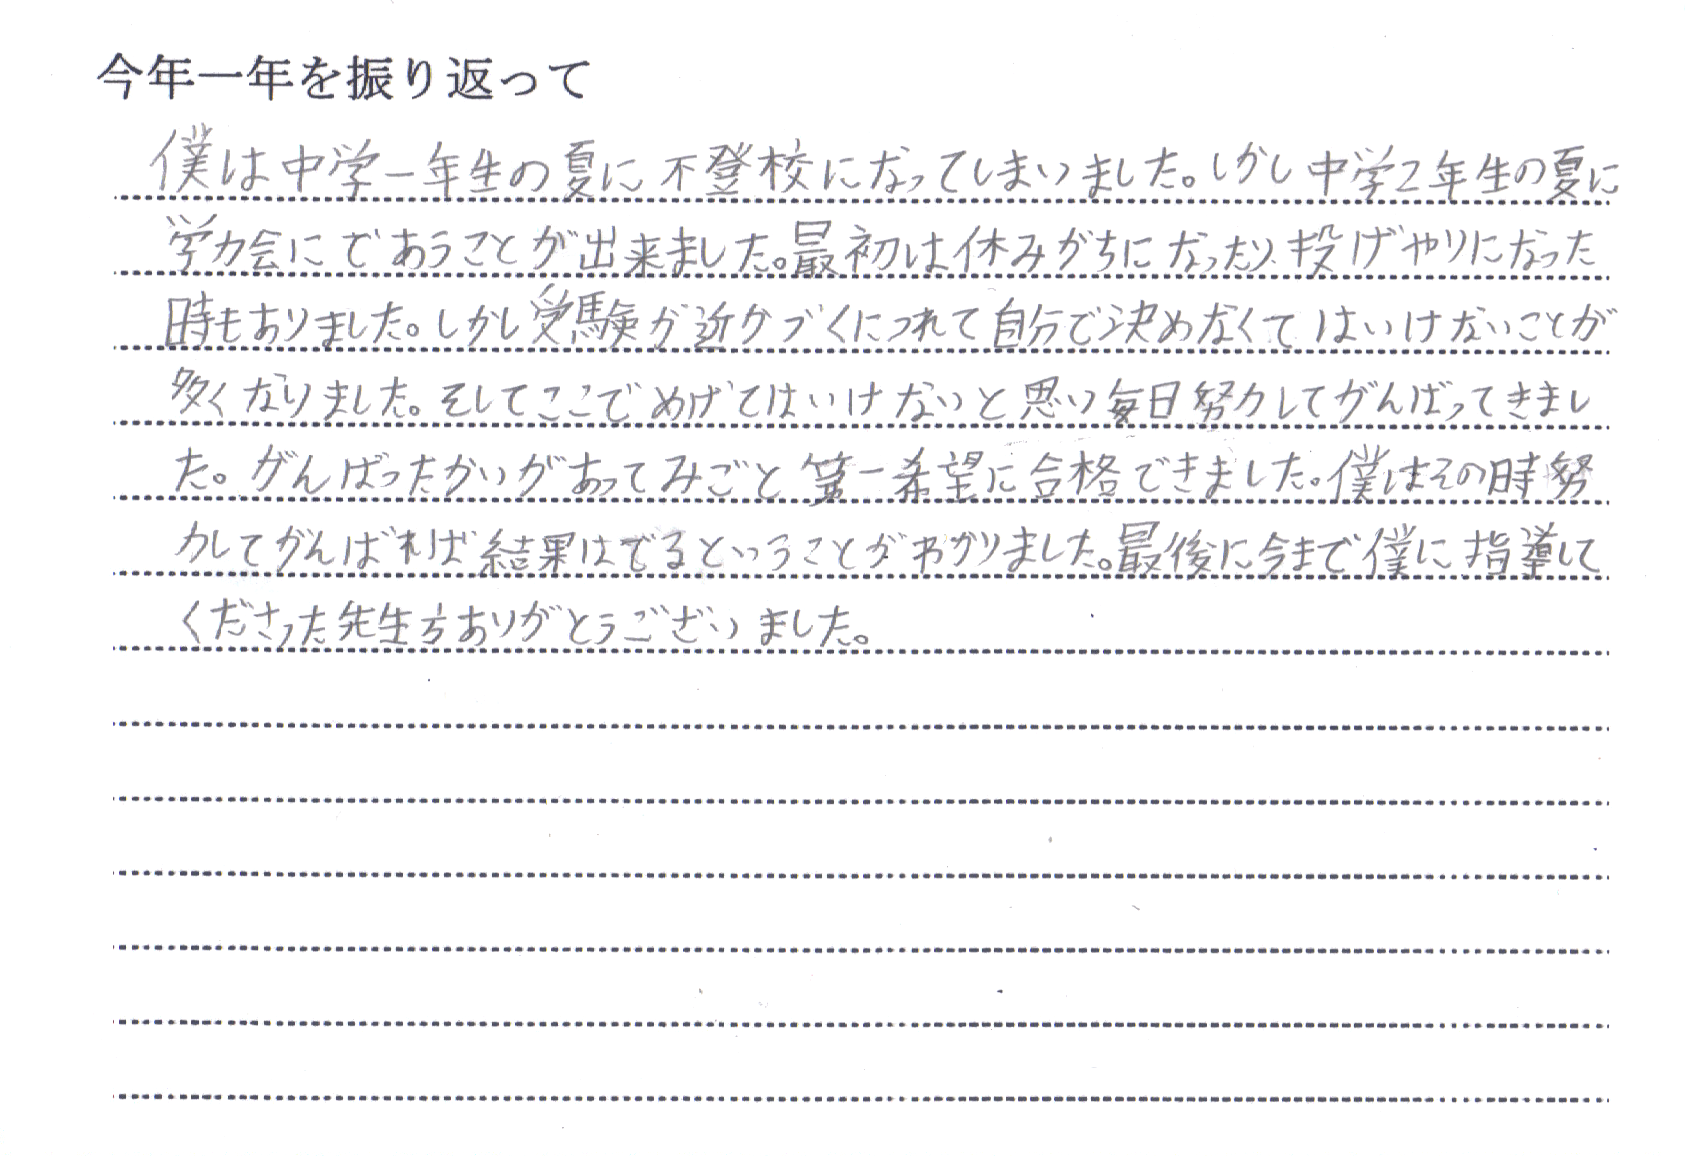 今年一年を振り返って
僕は中学一年生の夏に不登校になってしまいました。しかし中学2年生の夏に
学力会にであうことが出来ました。最初は休みがちになったり、投げやりになった
時もありました。しかし受験が近かづくにつれて自分で決めなくてはいけないことが
多くなりました。そしてここでめげてはいけないと思い毎日努力してがんばってきまし
た。がんばったかいがあってみごと第一希望に合格できました。僕はその時努
力してがんばれば結果はでるということがわかりました。最後に今まで僕に指導して
くださった先生方ありがとうございました。